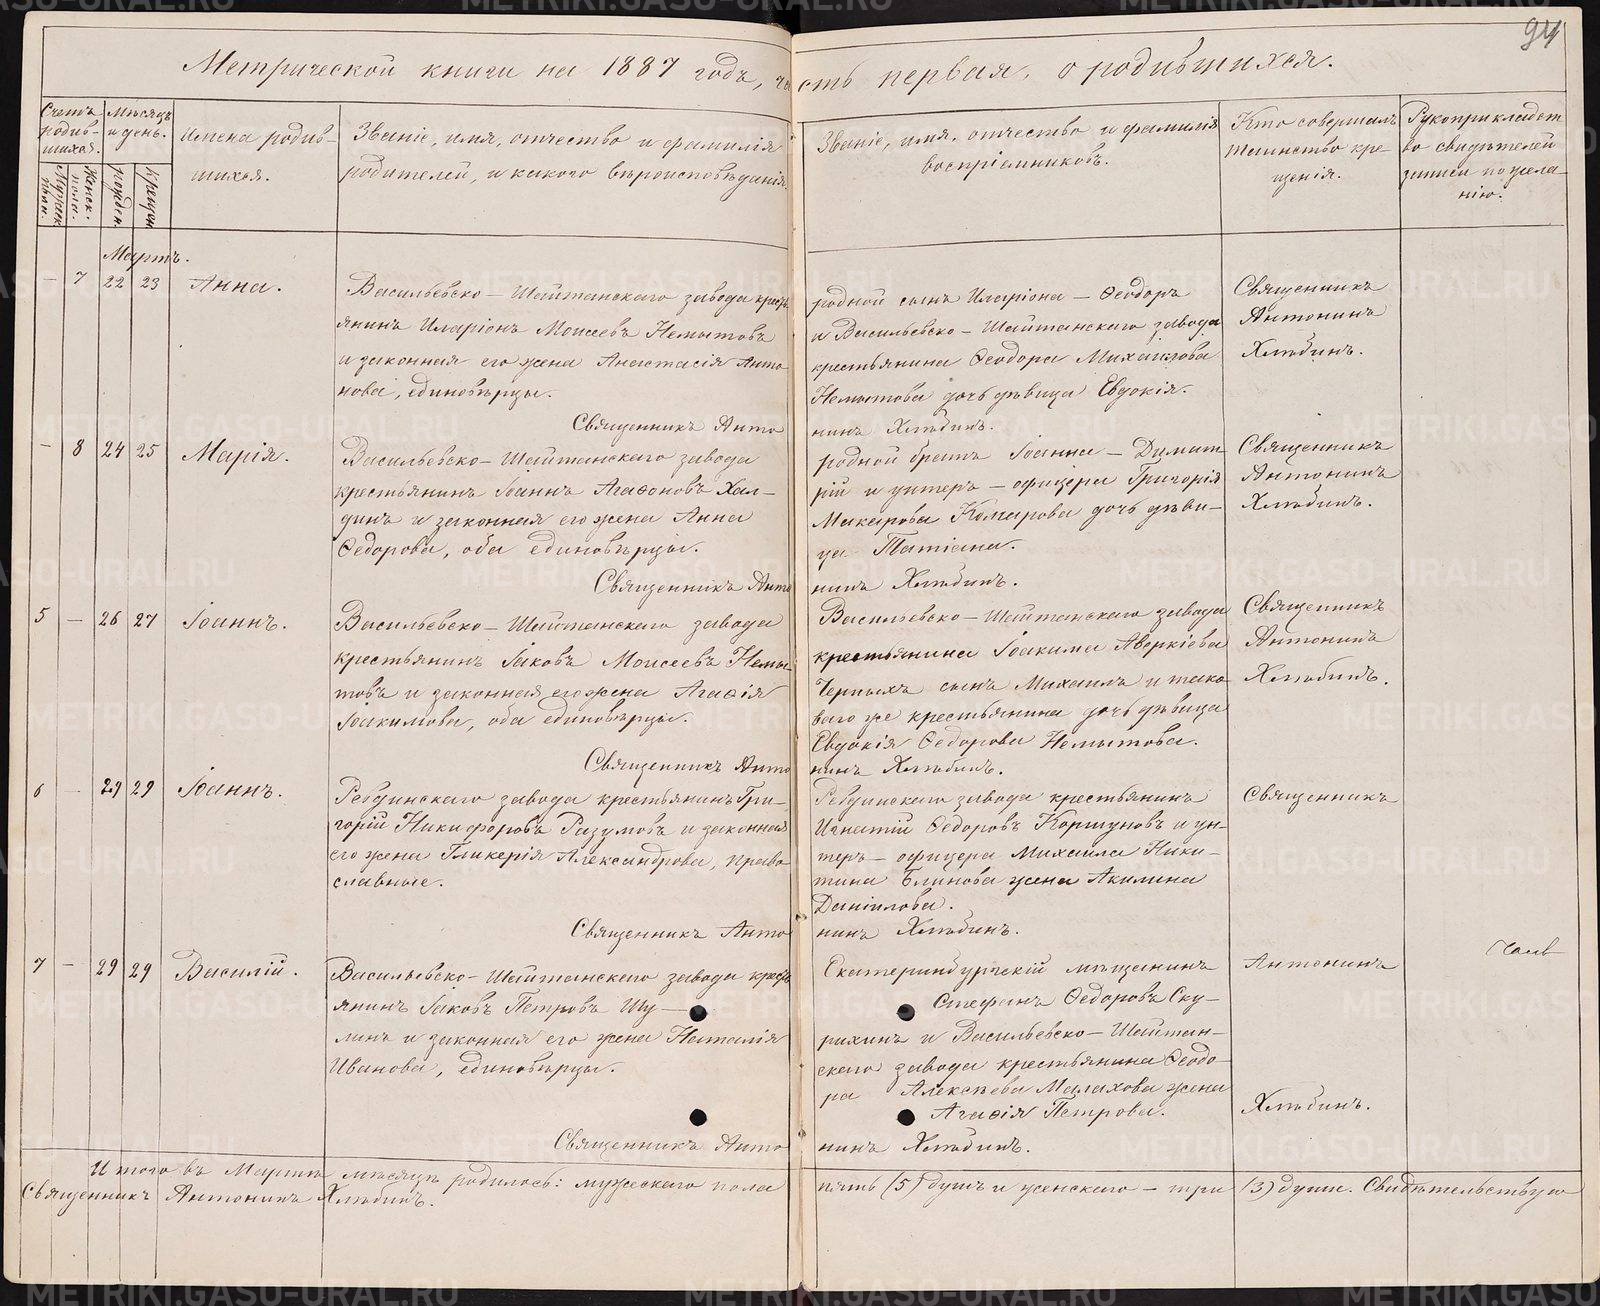 94
Метрической книги на 1887 годъ, часть первая, о родившихся.
Счетъ родив-шихся.
Мужеск.
Женск. пола.
Мѣсяцъ и день.
рожден.
крещен.
Имена родив-
шихся.
Званіе, имя, отчество и фамилія
родителей, и какого вѣроисповѣданія.
Званіе, имя, отчество и фамилія
воспріемниковъ.
Кто совершалъ
таинство кре-
щенія.
Рукоприкладст
во свидѣтелей
записи по жела-
нію.
Мартъ.
— 7 22 23 Анна.
Васильевско-Шайтанскаго завода кресть
янинъ Иларіонъ Моисеевъ Немытовъ
и законная его жена Анастасія Анто
нова, единовѣрцы.
Священникъ Анто
родной сынъ Иларіона — Ѳеодоръ
и Васильевско-Шайтанскаго завода
крестьянина Ѳеодора Михаилова
Немытова дочь дѣвица Евдокія.
нинъ Хлѣбинъ.
Священникъ
Антонинъ
Хлѣбинъ.
— 8 24 25 Марія.
Васильевско-Шайтанскаго завода
крестьянинъ Іоаннъ Агаѳоновъ Хал-
динъ и законная его жена Анна
Ѳедорова, оба единовѣрцы.
Священникъ Анто
родной братъ Іоанна — Димит
рій и унтеръ-офицера Григорія
Макарова Комарова дочь дѣви-
ца Татіана.
нинъ Хлѣбинъ.
Священникъ
Антонинъ
Хлѣбинъ.
5 — 26 27 Іоаннъ.
Васильевско-Шайтанскаго завода
крестьянинъ Іаковъ Моисеевъ Немы
товъ и законная его жена Агаѳія
Іоакимова, оба единовѣрцы.
Священникъ Анто
Васильевско-Шайтанскаго завода
крестьянина Іоакима Аверкіева
Черныхъ сынъ Михаилъ и тако
ваго же крестьянина дочь дѣвица
Евдокія Ѳедорова Немытова.
нинъ Хлѣбинъ.
Священникъ
Антонинъ
Хлѣбинъ.
6 — 29 29 Іоаннъ.
Ревдинскаго завода крестьянинъ Гри-
горій Никифоровъ Разумовъ и законная
его жена Гликерія Александрова, право
славные.
Священникъ Анто
Ревдинскаго завода крестьянинъ
Игнатій Ѳедоровъ Коршуновъ и ун-
теръ-офицера Михаила Ники-
тина Блинова жена Акилина
Даніилова.
нинъ Хлѣбинъ.
Священникъ
7 — 29 29 Василій.
Васильевско-Шайтанскаго завода кресть
янинъ Іаковъ Петровъ Шу-
линъ и законная его жена Наталія
Иванова, единовѣрцы.
Священникъ Анто
Екатеринбургскій мѣщанинъ
Стефанъ Ѳедоровъ Ску-
рихинъ и Васильевско-Шайтан-
скаго завода крестьянина Ѳеодо-
ра Алексѣева Малахова жена
Агаѳія Петрова.
нинъ Хлѣбинъ.
Антонинъ
Хлѣбинъ.
Итого въ Мартѣ мѣсяцѣ родилось: мужескаго пола пять (5) душъ и женскаго — три (3) души. Свидѣтельствую
Священникъ Антонинъ Хлѣбинъ.
METRIKI.GASO-URAL.RU